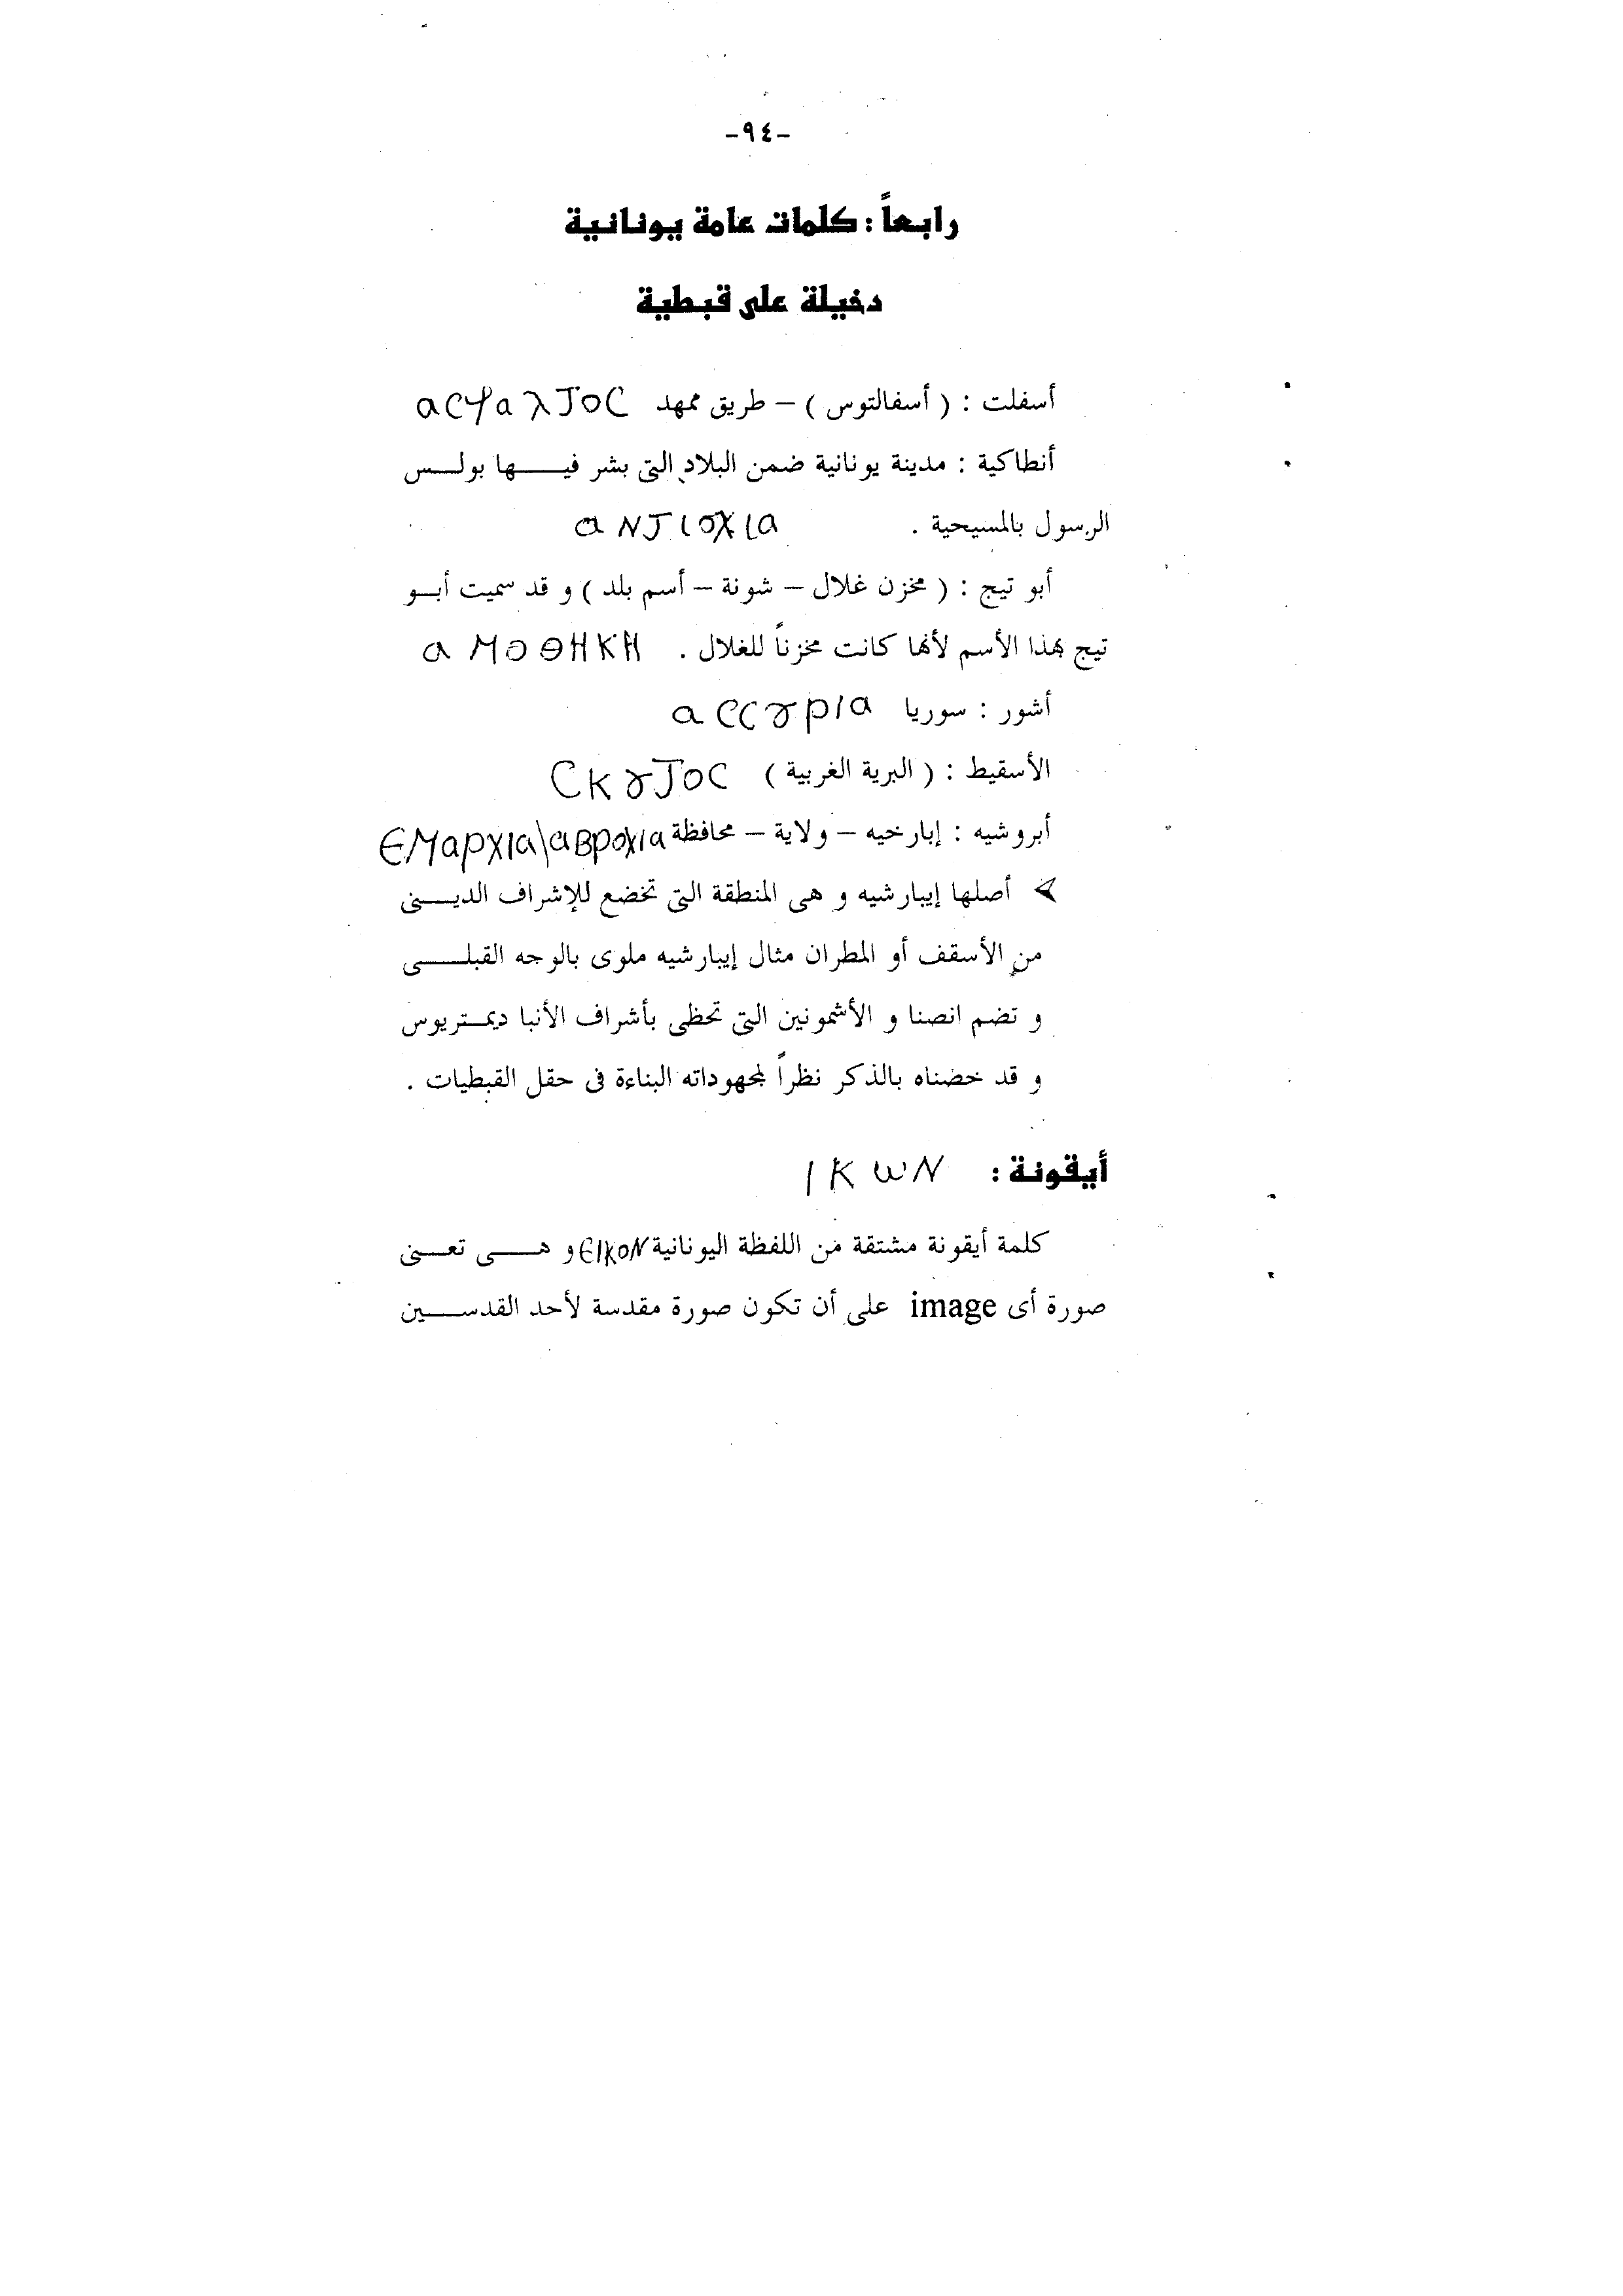 -٩٤-
رابعاً : كلمات عامة يونانية
دخيلة على قبطية
أسفلت : ( أسفالتوس ) – طريق ممهد ⲁⲥⲫⲁⲗⲧⲟⲥ
أنطاكية : مدينة يونانية ضمن البلاد التى بشر فيها بولس
الرسول بالمسيحية . ⲁⲛⲧⲓⲟⲭⲓⲁ
أبو تيج : ( مخزن غلال – شونة – أسم بلد ) و قد سميت أبو
تيج بهذا الأسم لأنها كانت مخزناً للغلال . ⲁⲡⲟⲑⲏⲕⲏ
أشور : سوريا ⲁⲥⲥⲩⲣⲓⲁ
الأسقيط : ( البرية الغربية ) ⲥⲕⲩⲧⲟⲥ
أبروشيه : إبارخيه – ولاية – محافظة ⲉⲡⲁⲣⲭⲓⲁ\ⲁⲃⲣⲟⲭⲓⲁ
➤ أصلها إيبارشيه و هى المنطقة التى تخضع للإشراف الدينى
من الأسقف أو المطران مثال إيبارشيه ملوى بالوجه القبلى
و تضم انصنا و الأشمونين التى تحظى بأشراف الأنبا ديمتريوس
و قد خضناه بالذكر نظراً لمجهوداته البناءة فى حقل القبطيات .
أيقونة : ⲓⲕⲱⲛ
كلمة أيقونة مشتقة من اللفظة اليونانية ⲉⲓⲕⲟⲛ و هى تعنى
صورة أى image على أن تكون صورة مقدسة لأحد القدسين